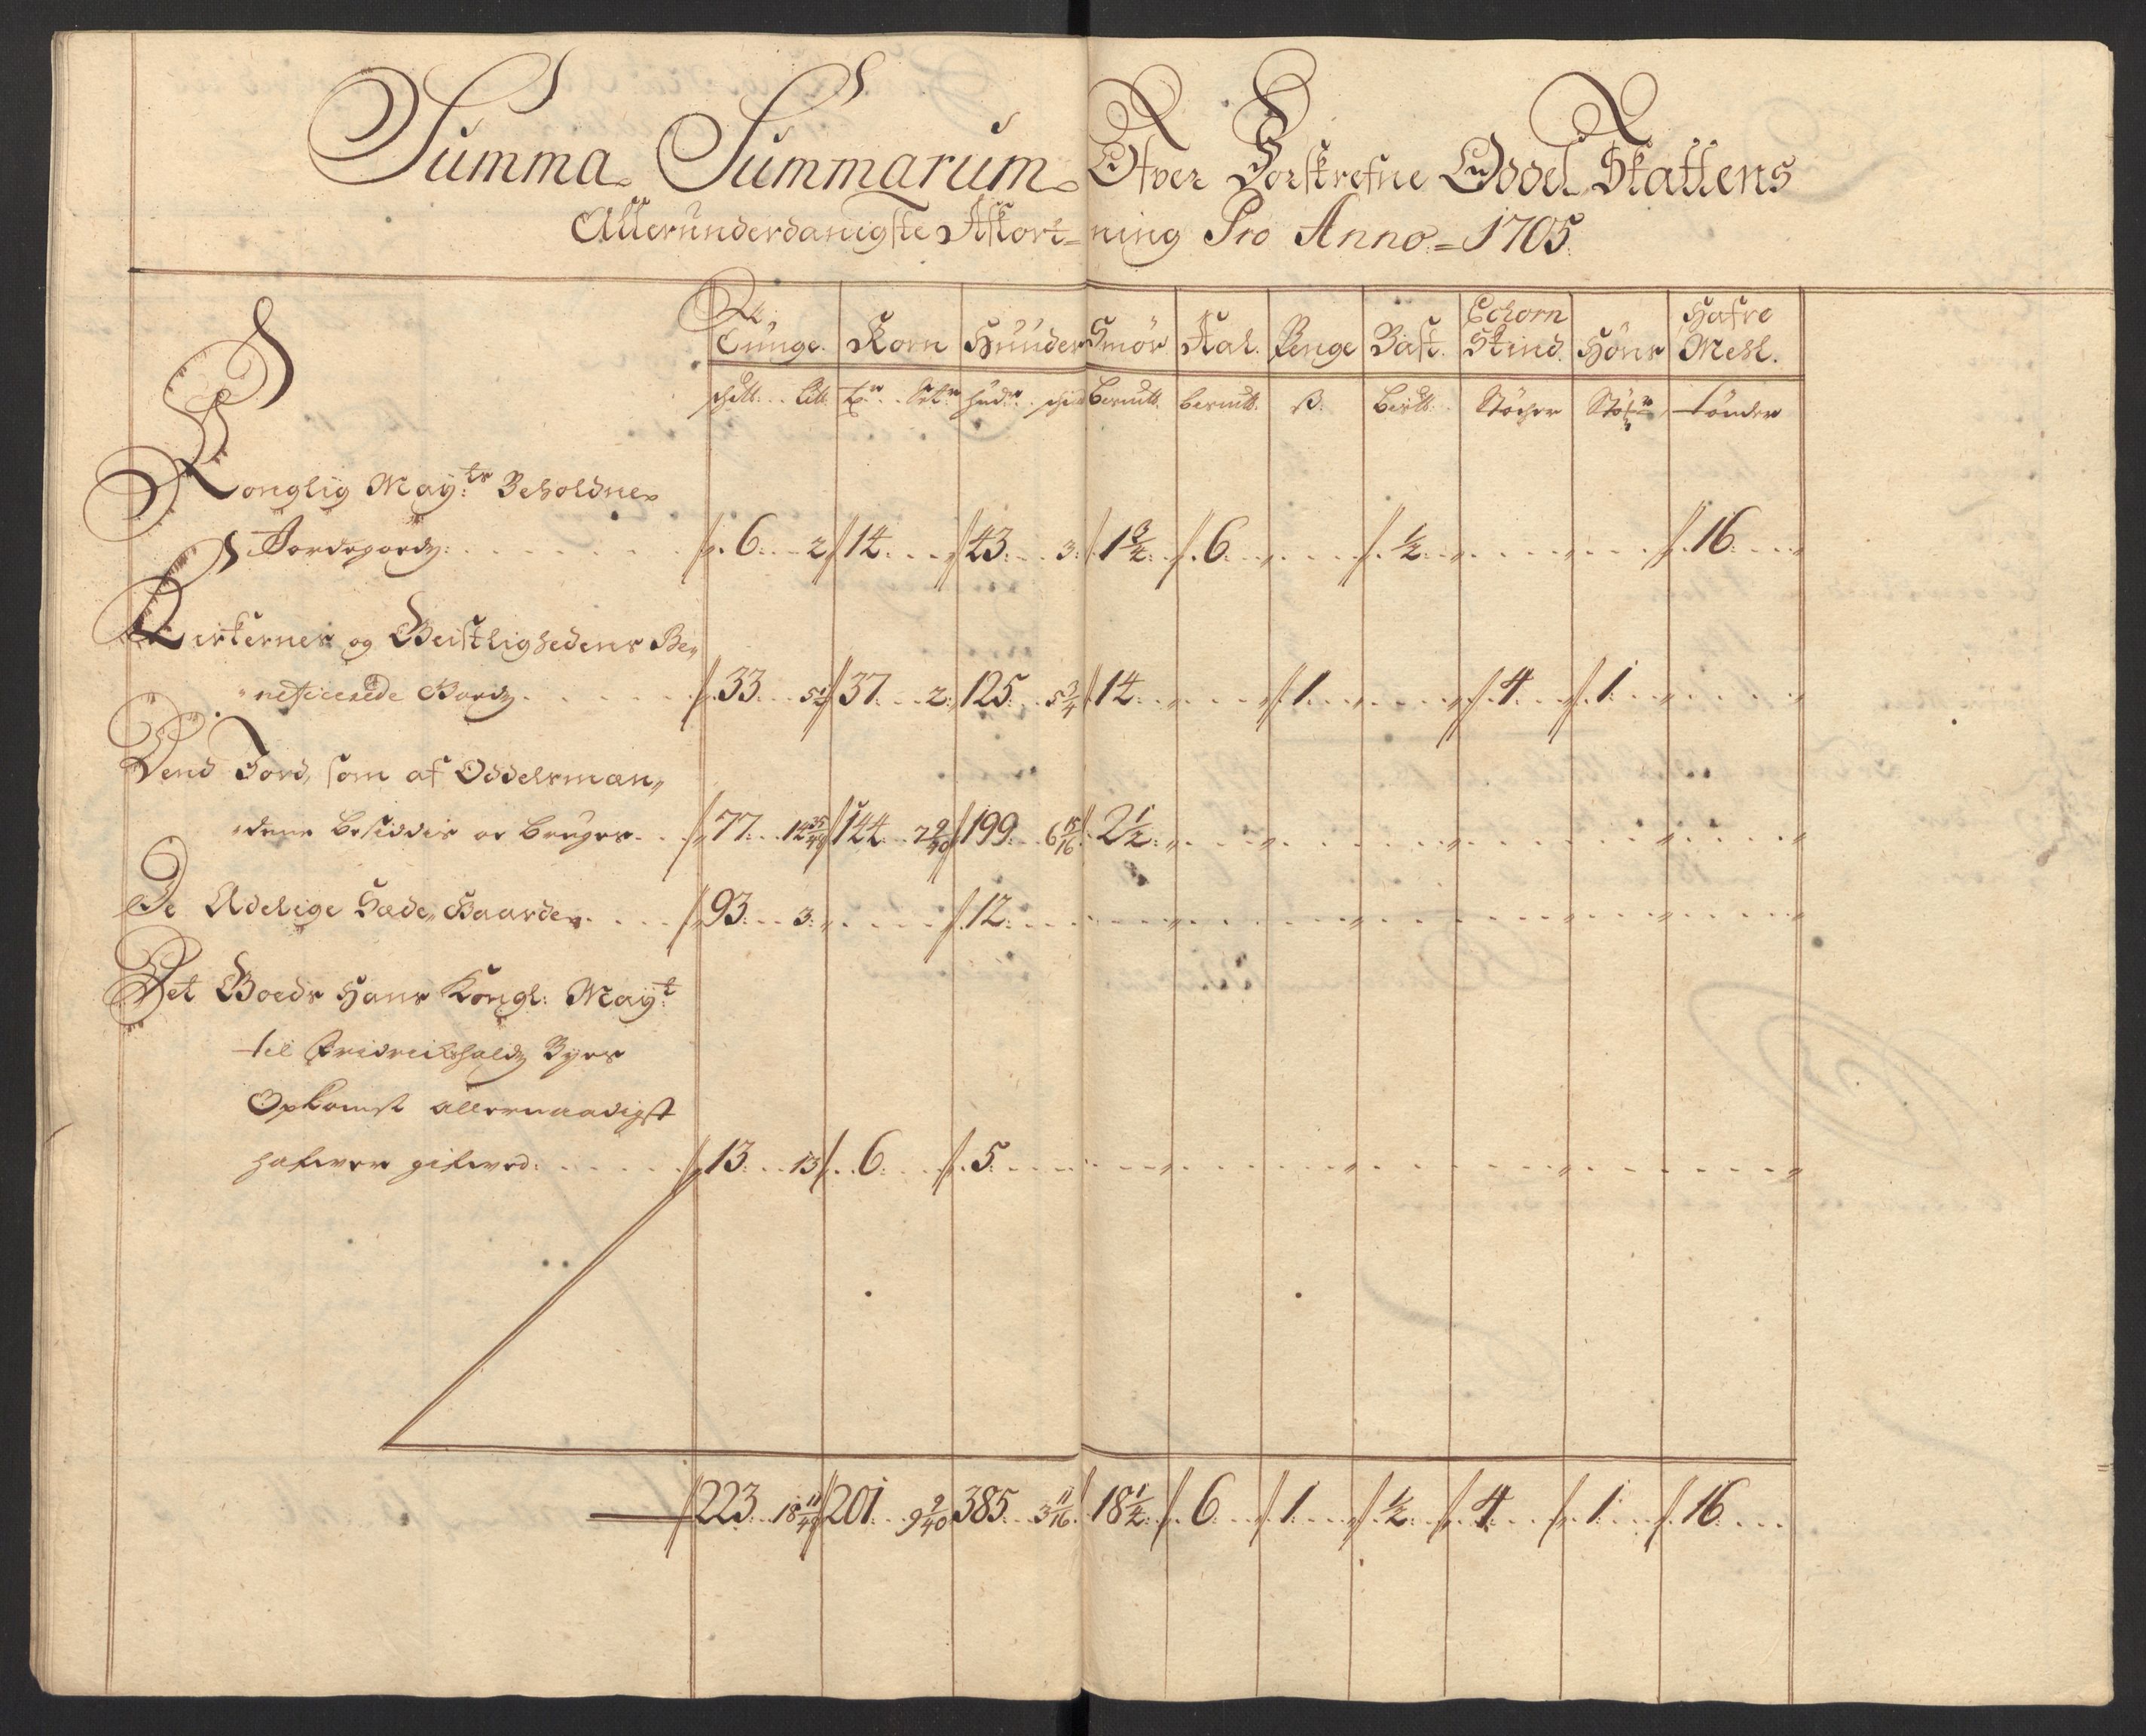 Summa Summarum Ofver Forskrefne Oddel Skattens
Allerunderdanigste Afkort=ning Pro Anno = 1705.
Tunge. Korn Hunder Smör Aal. Penge Bast. Echorn Skind. Höns Hafre Mehl.
schll: Lll: hudr: schind Bermll. bermll. ß. Stöcher tönder
Konglig Mayts Beholdne
Jordegods: 6: 2 14 43: 3: 1 3/4: 6: 1/2 16
Kirkernes og Geistlighedens Be„
neficerede Gods 33 5 1/2 37 2: 125: 5 3/4 14 1 4 1
Dend Jord, som af Oddelsmæn„
dene besiddis og bruges 77 14 35/48 144: 7 9/40 199: 6 15/16 2 1/2
De Adelige Sæde Gaarde 93: 3: 12:
Det Goeds Hans Kongl: Mayt
til Fridrichshalds Byes
Opkomst allernaadigst
hafver gifved: 13: 13 6: 5:
223: 18 11/48 201: 9 9/40 385: 3 11/16 18 1/4 6 1 1/2 4 1 16